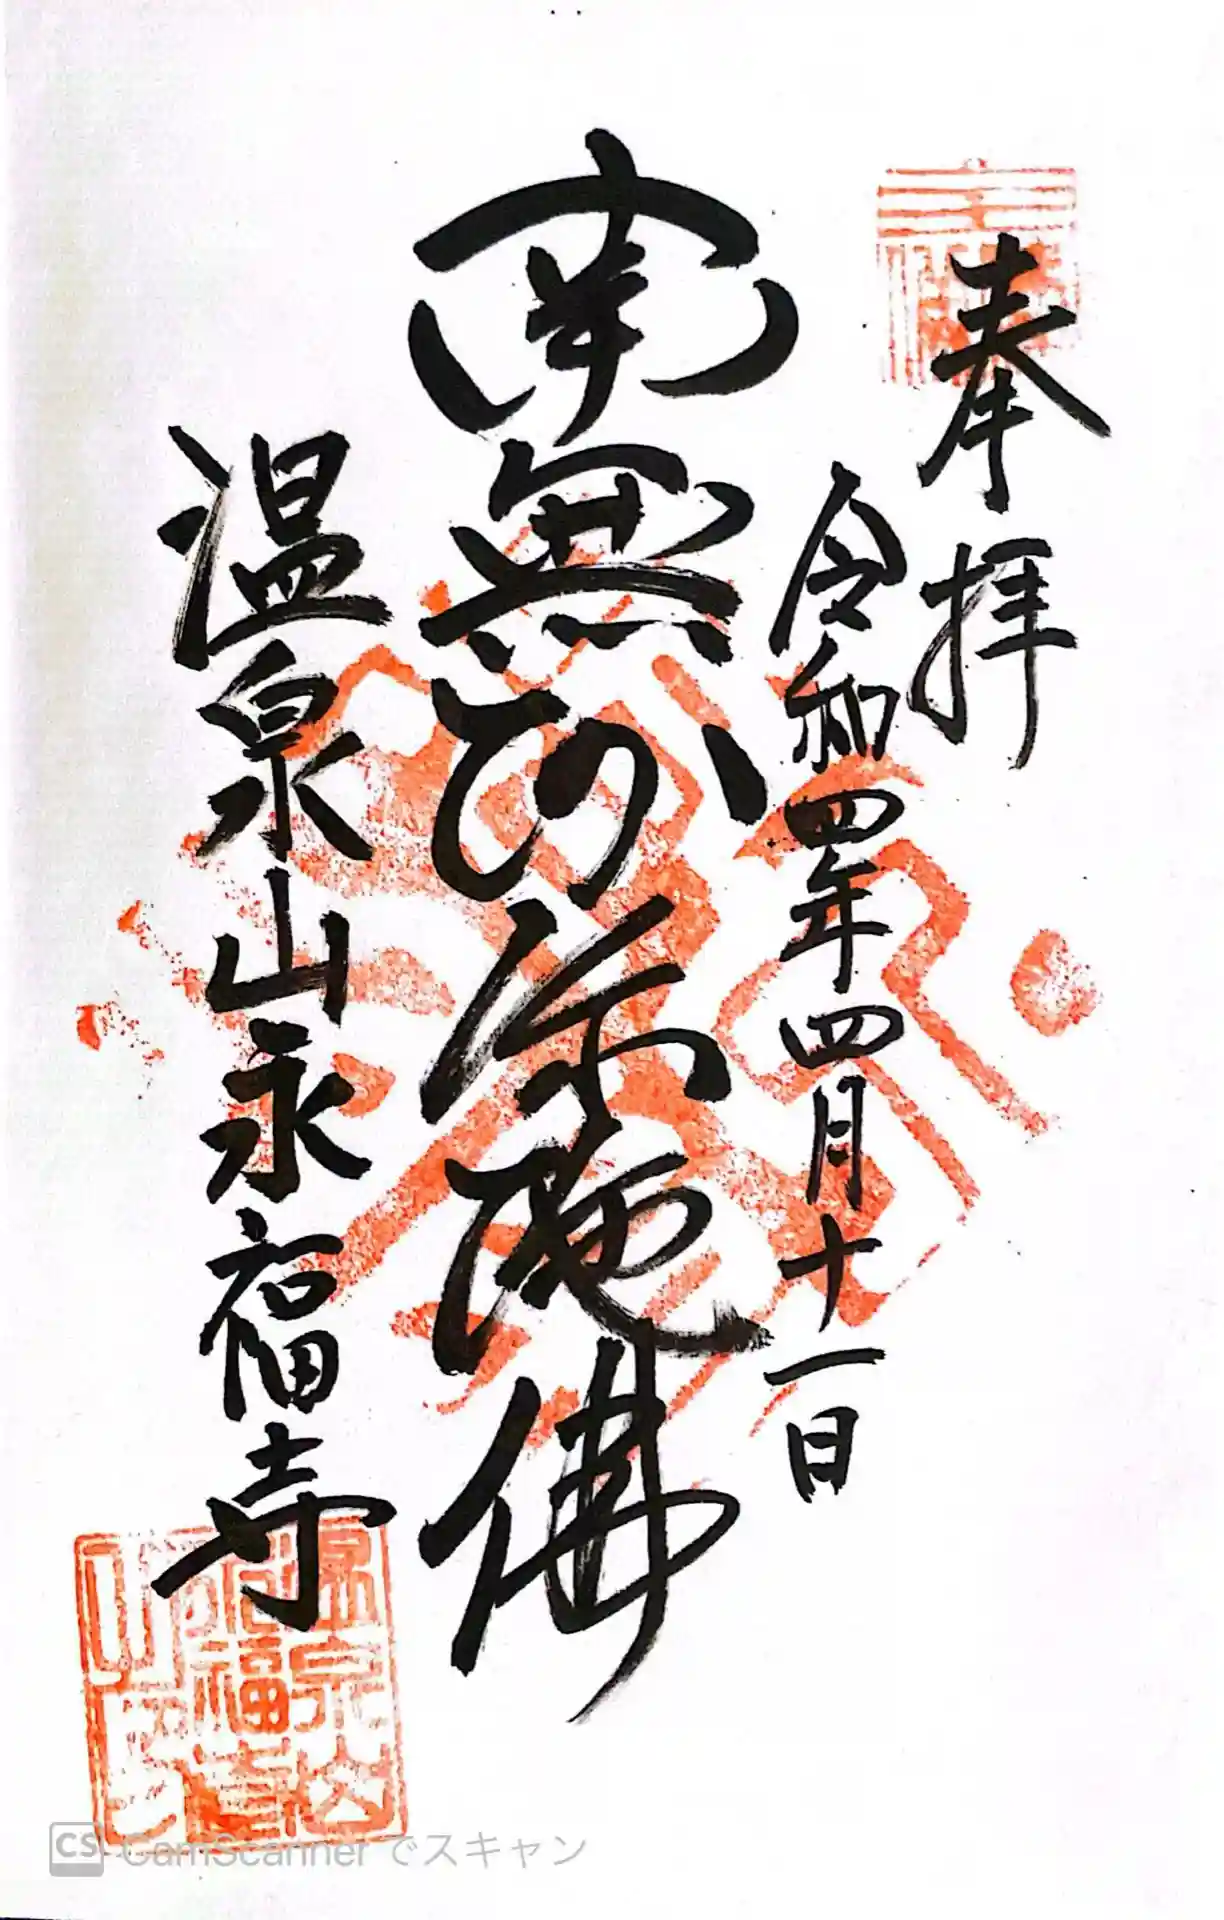 奉拝
令和四年四月十一日
南無阿弥陀佛
温泉山永福寺
温泉山
福寺
CS CamScanner でスキャン